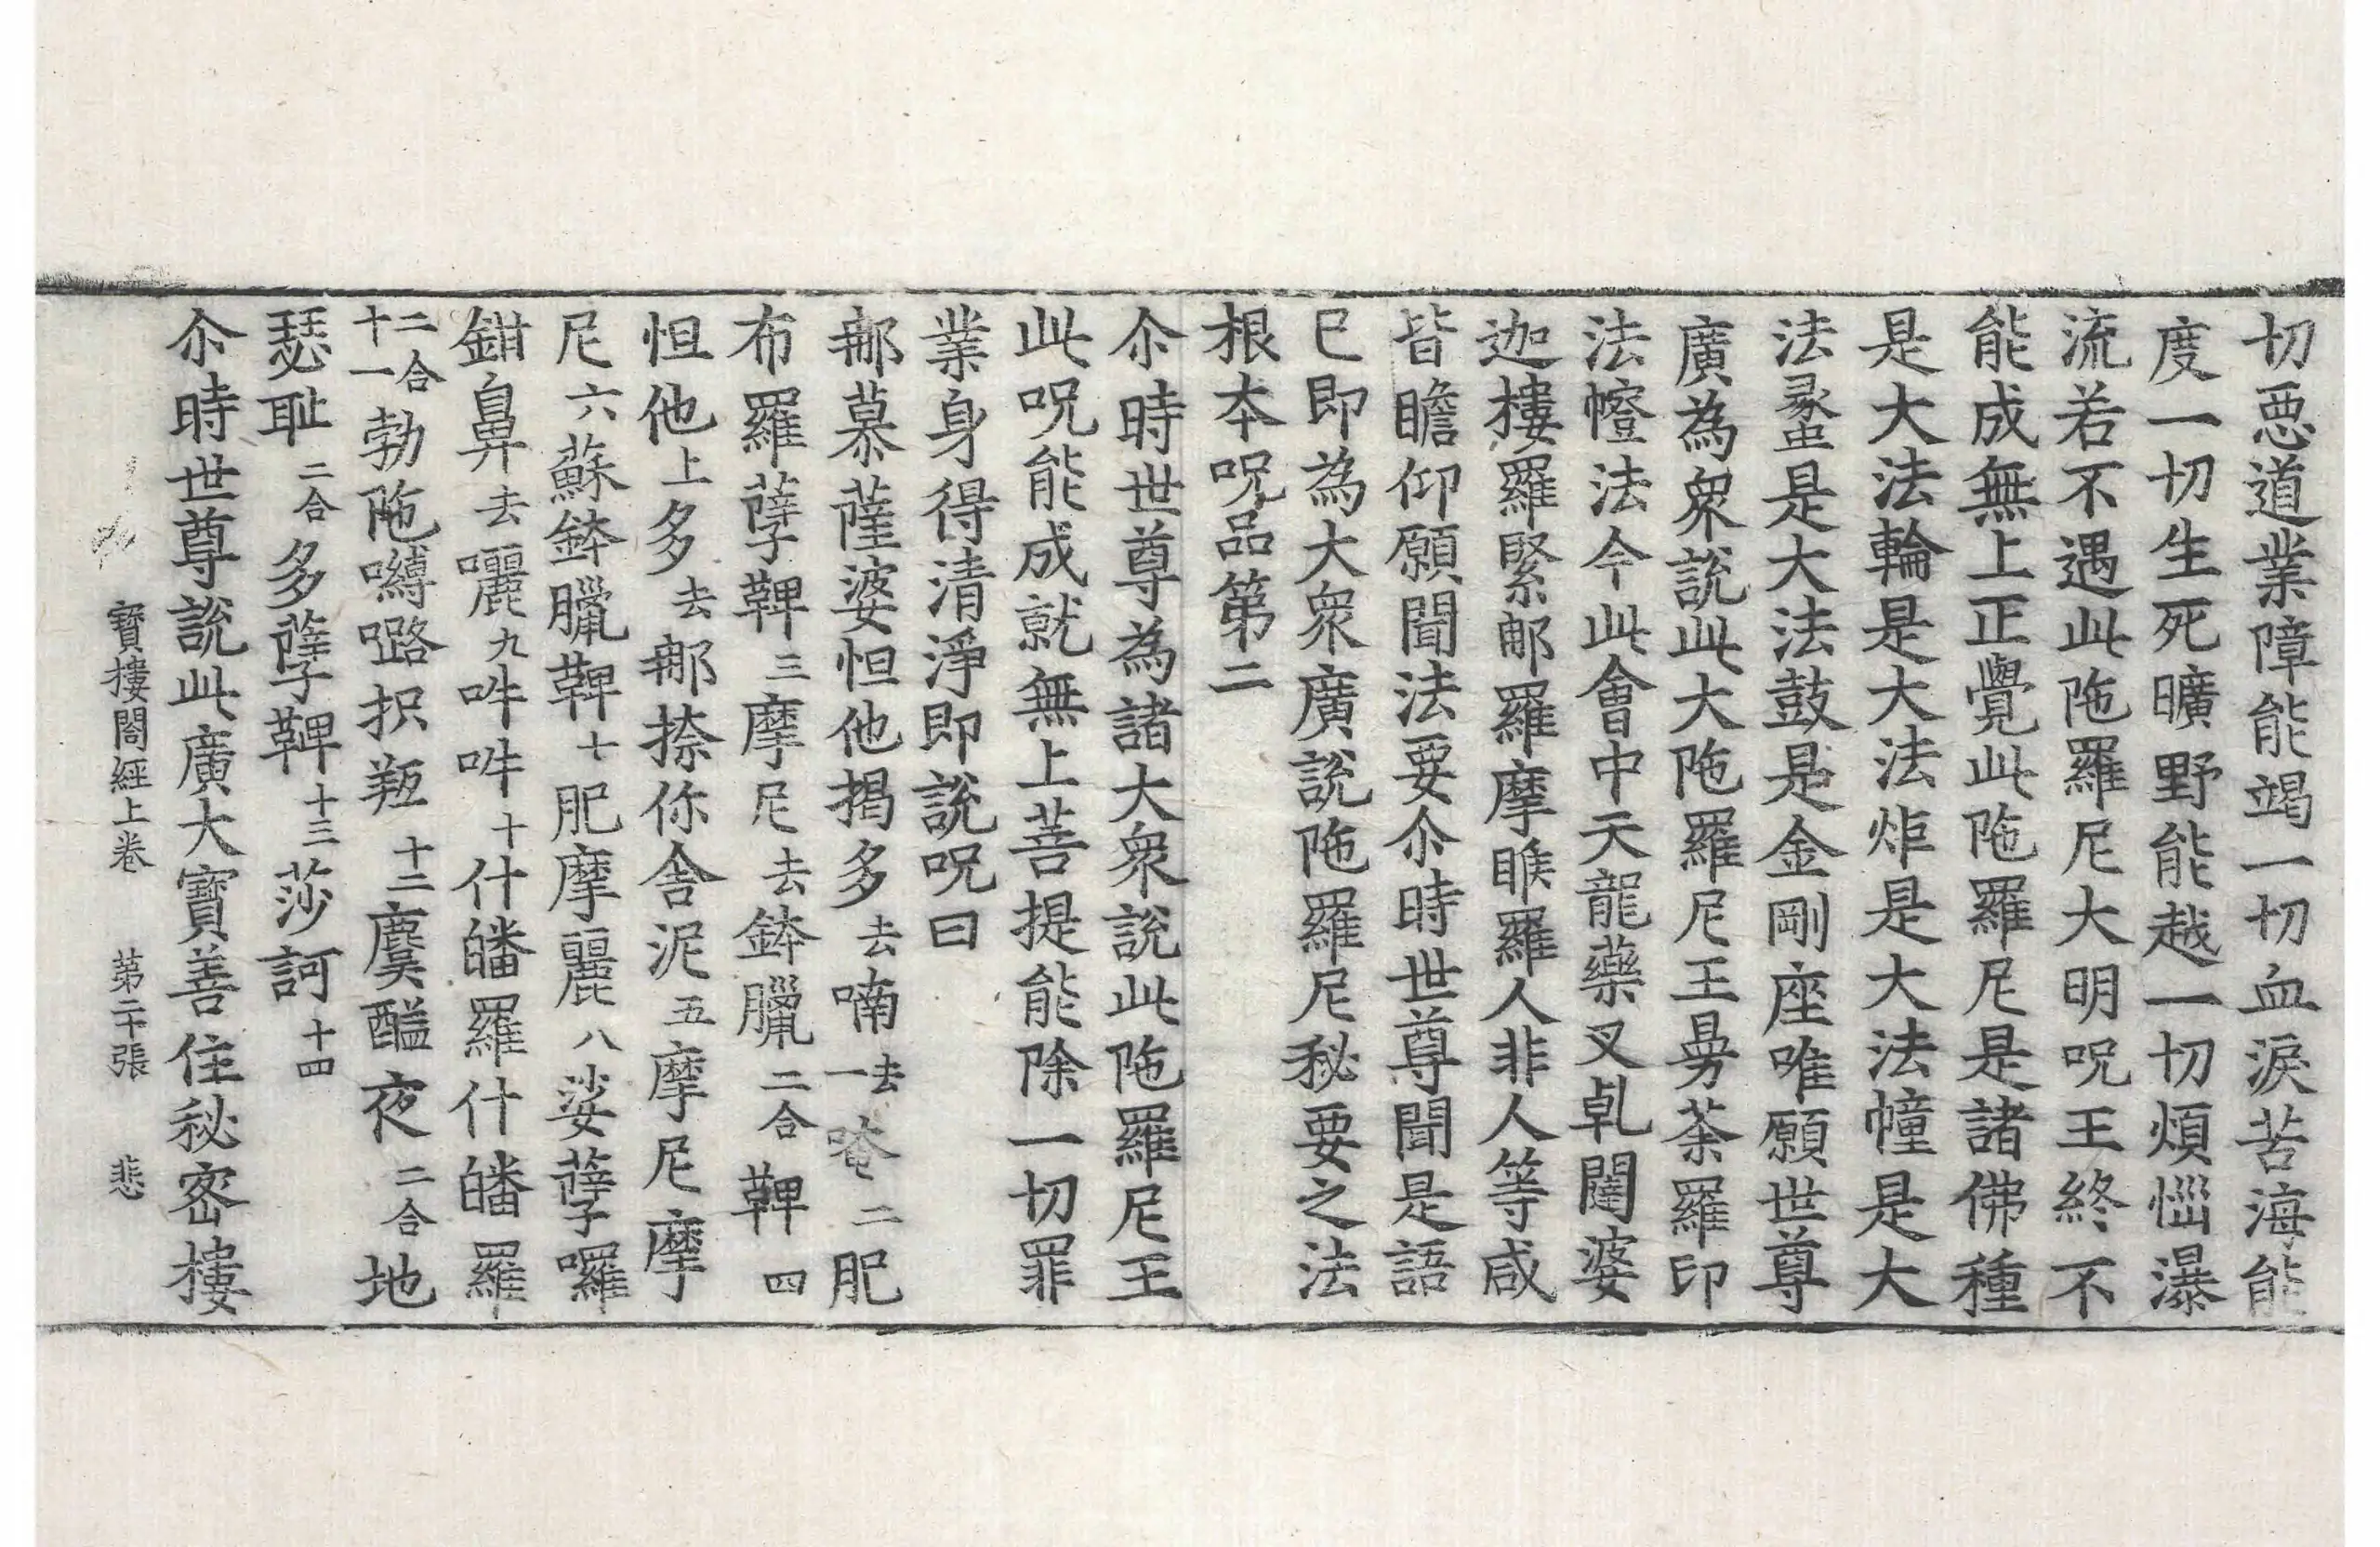 切惡道業障能竭一切血淚苦海能
度一切生死曠野能越一切煩惱瀑
流若不遇此陁羅尼大明呪王終不
能成無上正覺此陁羅尼是諸佛種
是大法輪是大法炬是大法幢是大
法螽是大法鼓是金剛座唯願世尊
廣為衆說此大陁羅尼王曼荼羅印
法㡧法今此會中天龍藥叉乹闥婆
迦樓羅緊郍羅摩睺羅人非人等咸
皆瞻仰願聞法要尒時世尊聞是語
已即為大衆廣說陁羅尼秘要之法
根本呪品第二
尒時世尊為諸大衆說此陁羅尼王
此呪能成就無上菩提能除一切罪
業身得清淨即說呪曰
郍慕薩婆怛他揭多去喃去一唵二肥
布羅孽鞞三摩尼去鉢臘二合鞞四
怛他上多去郍捺你舍泥五摩尼摩
尼六蘇鉢臘鞞七肥摩麗八娑孽囉
鉗鼻去㘑九吽吽十什皤羅什皤羅
二合十一勃陁嚩𡀔抧𦍕十二麌醯夜二合地
瑟耻二合多孽鞞十三莎訶十四
尒時世尊說此廣大寶善住秘密樓
寶樓閣經上卷 第二十張 悲